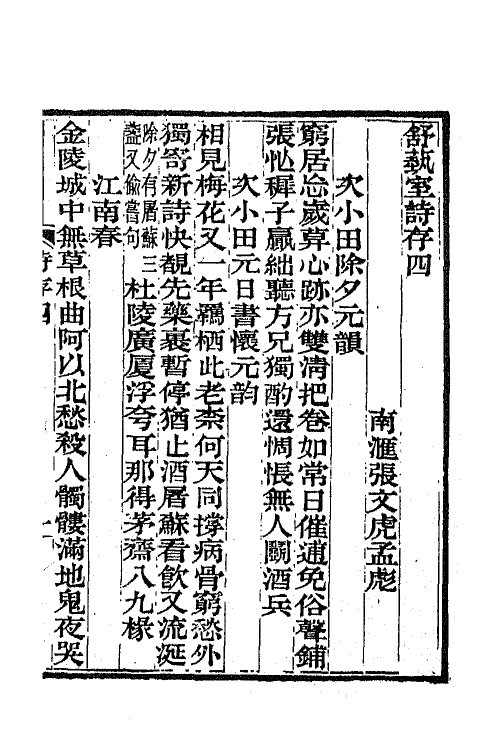 舒蓺室詩存四
南滙張文虎孟彪
次小田除夕元韻
窮居忘歲算心跡亦雙淸把卷如常日催逋免俗聲鋪
張怭穉子贏絀聽方兄獨酌還惆悵無人鬭酒兵
次小田元日書懷元韵
相見梅花又一年羈栖此老柰何天同撐病骨窮愁外
獨寄新詩快覩先藥裹暫停猶止酒屠蘇看飮又流涎
除夕有屠蘇三
盞又偸嘗句
杜陵廣厦浮夸耳那得茅齋八九椽
江南春
金陵城中無草根曲阿以北愁殺人髑髏滿地鬼夜哭
詩存四
一